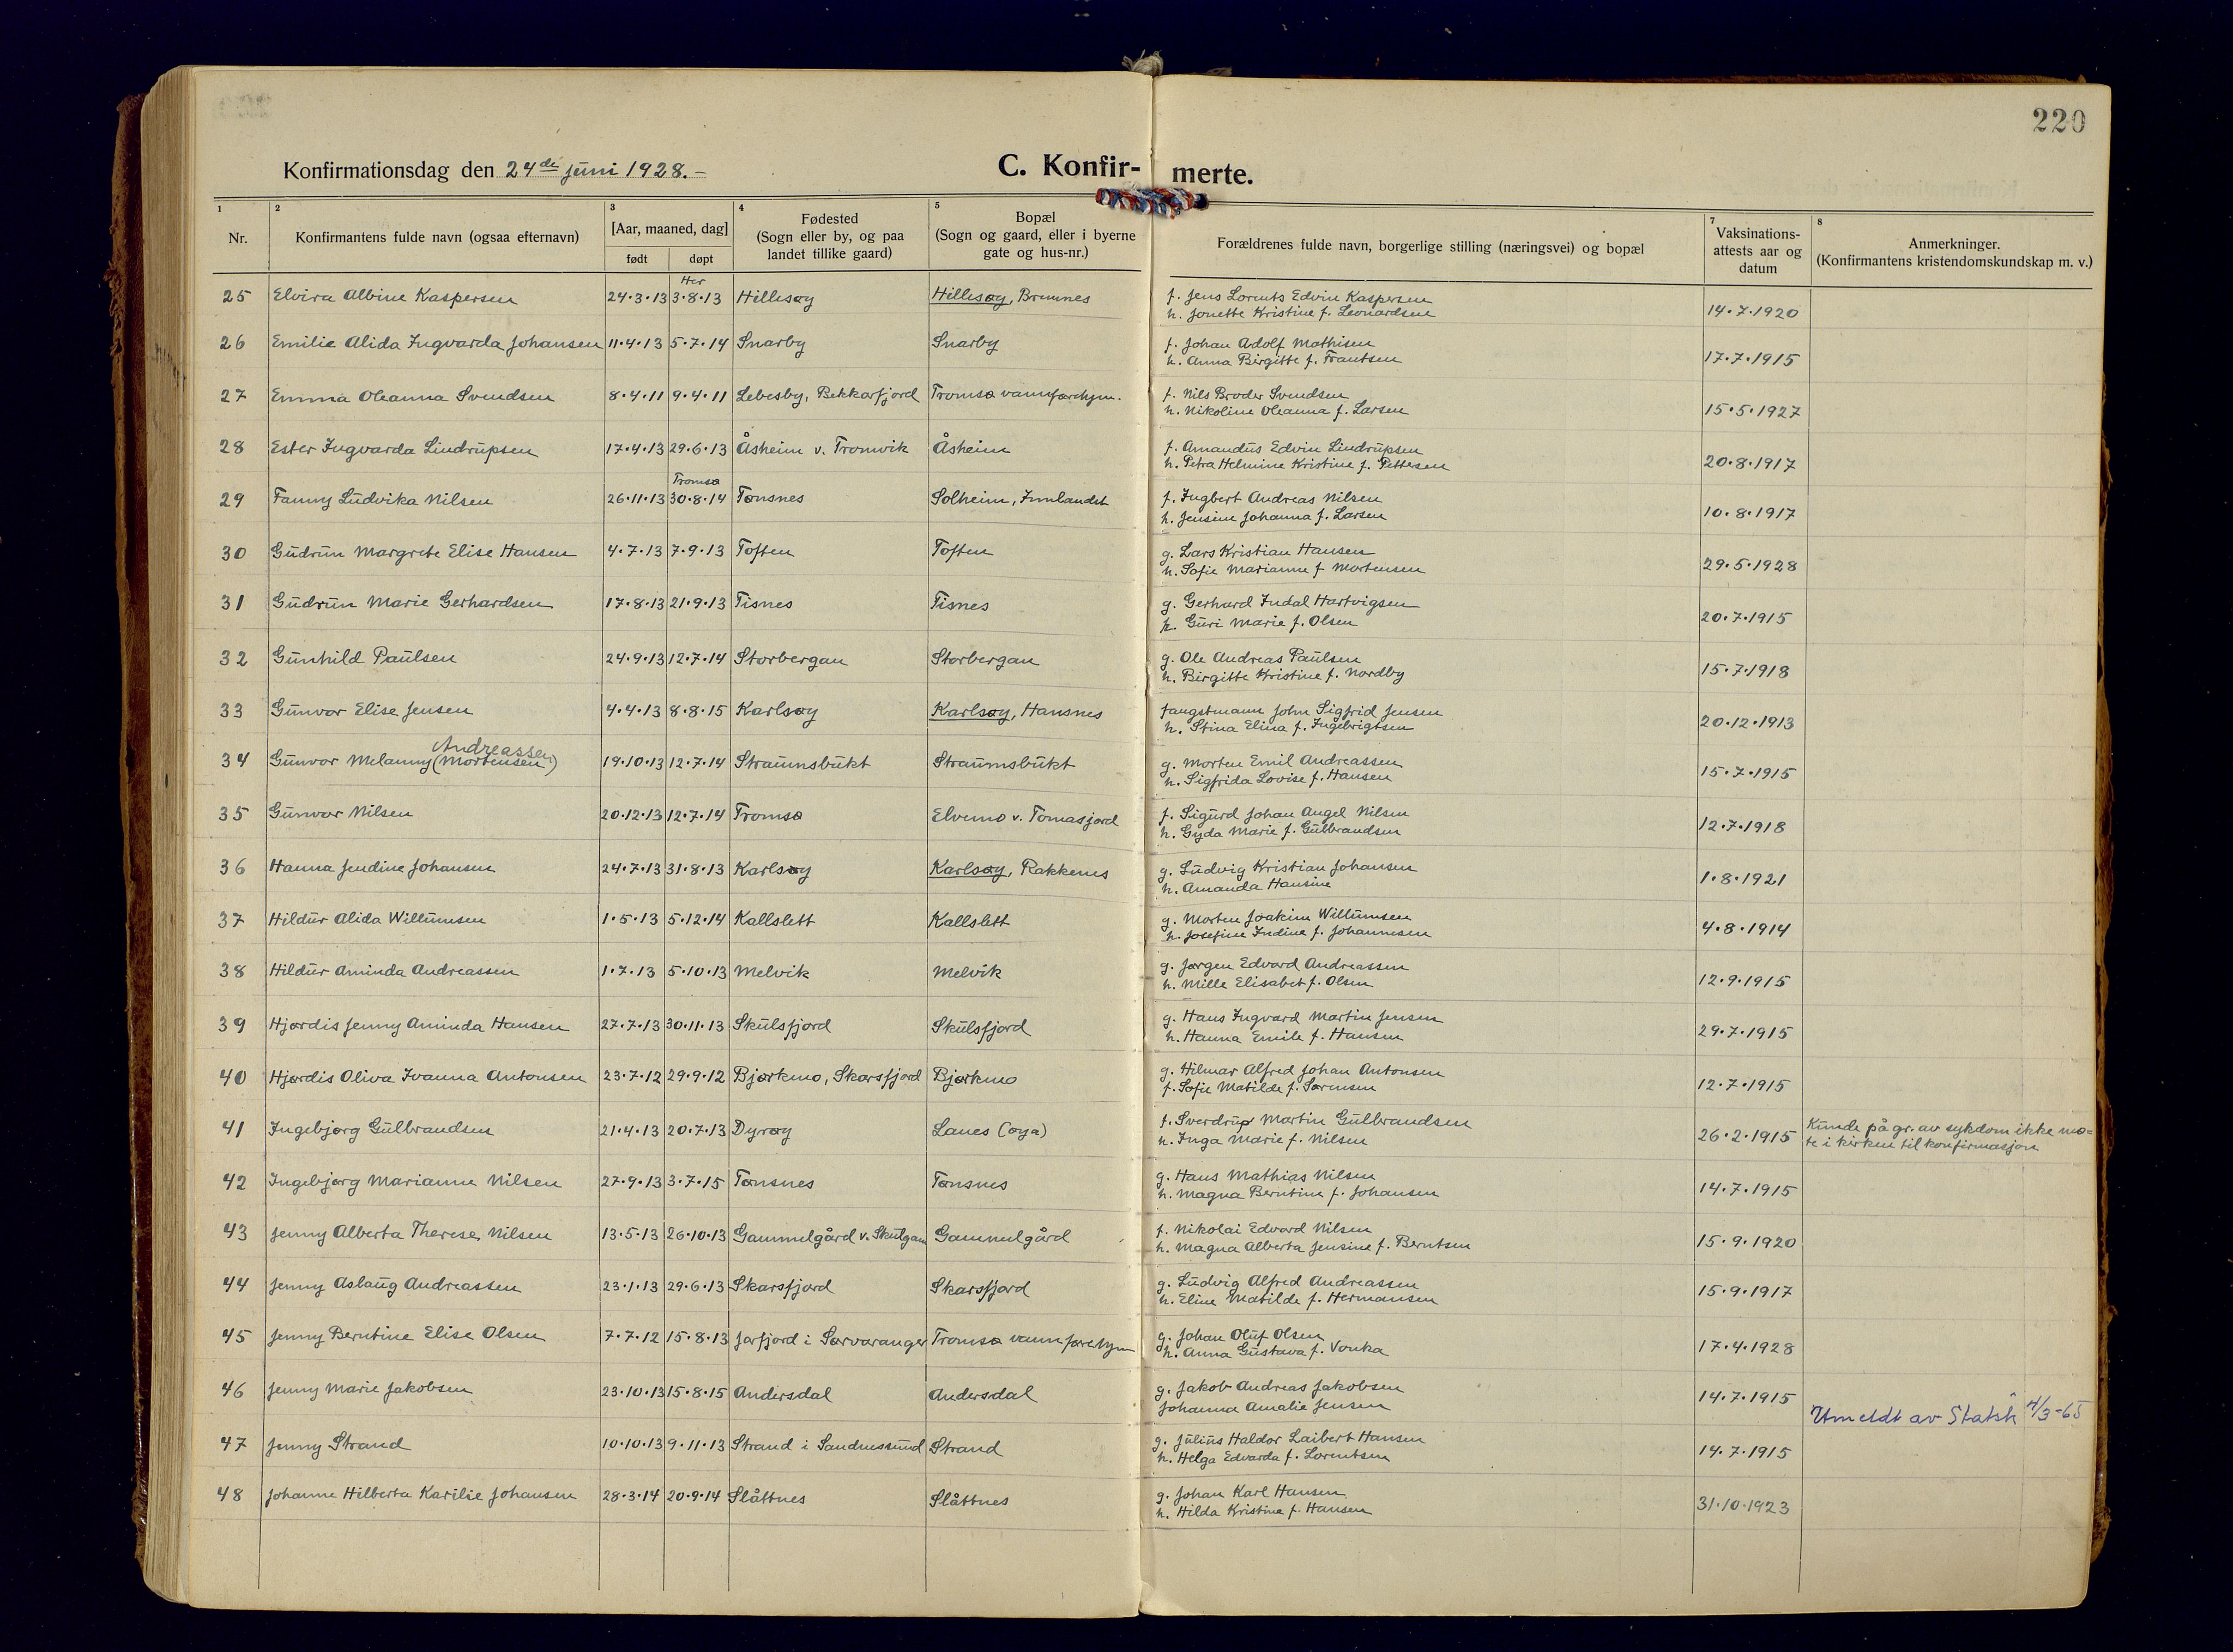 220
Konfirmationsdag den 24de juni 1928. –
C. Konfir- merte.
1 2 3 4 5 7 8
Nr. Konfirmantens fulde navn (ogsaa efternavn) [Aar, maaned, dag] født døpt Fødested (Sogn eller by, og paa landet tillike gaard) Bopæl (Sogn og gaard, eller i byerne gate og hus-nr.) Forældrenes fulde navn, borgerlige stilling (næringsvei) og bopæl Vaksinations-attests aar og datum Anmerkninger. (Konfirmantens kristendomskundskap m. v.)
25 Elvira Albine Kaspersen 24.3.13 Her 3.8.13 Hillesøy Hillesøy, Brennes f. Jens Lorents Edvin Kaspersen
h. Jonette Kristine f. Leonardsen 14.7.1920
26 Emilie Alida Ingvarda Johansen 11.4.13 5.7.14 Snarby Snarby f. Johan Adolf Mathisen
h. Anna Birgitte f. Frantsen 17.7.1915
27 Emma Oleanna Svendsen 8.4.11 9.4.11 Lebesby, Bekkarfjord Tromsø vannførehjm. f. Nils Broder Svendsen
h. Nikoline Oleanna f. Larsen 15.5.1927
28 Ester Ingvarda Lindrupsen 17.4.13 29.6.13 Åsheim v. Tromvik Åsheim f. Amandus Edvin Lindrupsen
h. Petra Helmine Kristine f. Pettersen 20.8.1917
29 Fanny Ludvika Nilsen 26.11.13 Tromsø 30.8.14 Tønsnes Solheim, Innlandet f. Ingbert Andreas Nilsen
h. Jensine Johanna f. Larsen 10.8.1917
30 Gudrun Margrete Elise Hansen 4.7.13 7.9.13 Toften Toften g. Lars Kristian Hansen
h. Sofie Marianne f Mortensen 29.5.1928
31 Gudrun Marie Gerhardsen 17.8.13 21.9.13 Tisnes Tisnes g. Gerhard Indal Hartvigsen
h. Guri Marie f. Olsen 20.7.1915
32 Gunhild Paulsen 24.9.13 12.7.14 Storbergan Storbergan g. Ole Andreas Paulsen
h. Birgitte Kristine f. Nordby 15.7.1918
33 Gunvor Elise Jensen 4.4.13 8.8.15 Karlsøy Karlsøy, Hansnes fangstmann John Sigfrid Jensen
h. Stina Elina f. Ingebrigtsen 20.12.1913
34 Gunvor Melanny (Mortensen) Andreassen 19.10.13 12.7.14 Straumsbukt Straumsbukt g. Morten Emil Andreassen
h. Sigfrida Lovise f. Hansen 15.7.1915
35 Gunvor Nilsen 20.12.13 12.7.14 Tromsø Elvemo v. Tomasjord f. Sigurd Johan Angel Nilsen
h. Gyda Marie f. Gulbrandsen 12.7.1918
36 Hanna Jendine Johansen 24.7.13 31.8.13 Karlsøy Karlsøy, Rakkenes g. Ludvig Kristian Johansen
h. Amanda Hansine 1.8.1921
37 Hildur Alida Willumsen 1.5.13 5.12.14 Kallslett Kallslett g. Morten Joakim Willumsen
h. Josefine Indine f. Johannesen 4.8.1914
38 Hildur Aminda Andreassen 1.7.13 5.10.13 Melvik Melvik g. Jørgen Edvard Andreassen
h. Mille Elisabet f. Olsen 12.9.1915
39 Hjørdis Jenny Aminda Hansen 27.7.13 30.11.13 Skulsfjord Skulsfjord g. Hans Ingvard Martin Jensen
h. Hanna Emile f. Hansen 29.7.1915
40 Hjørdis Oliva Ivanna Antonsen 23.7.12 29.9.12 Bjørkmo, Skarsfjord Bjørkmo g. Hilmar Alfred Johan Antonsen
f. Sofie Matilde f. Sørensen 12.7.1915
41 Ingebjørg Gulbrandsen 21.4.13 20.7.13 Dyrøy Lanes (øya) f. Sverdrup Martin Gulbrandsen
h. Inga Marie f. Nilsen 26.2.1915 Kunde på gr. av sykdom ikke mø=
te i kirken til konfirmasjon
42 Ingebjørg Marianne Nilsen 27.9.13 3.7.15 Tønsnes Tønsnes g. Hans Mathias Nilsen
h. Magna Berntine f. Johansen 14.7.1915
43 Jenny Alberta Therese Nilsen 13.5.13 26.10.13 Gammelgård v. Skulgam Gammelgård f. Nikolai Edvard Nilsen
h. Magna Alberta Jensine f. Berntsen 15.9.1920
44 Jenny Aslaug Andreassen 23.1.13 29.6.13 Skarsfjord Skarsfjord g. Ludvig Alfred Andreassen
h. Eline Matilde f. Hermansen 15.9.1917
45 Jenny Berntine Elise Olsen 7.7.12 15.8.13 Jarfjord i Sørvaranger Tromsø vannførehjm g. Johan Oluf Olsen
h. Anna Gustava f. Vonka 17.4.1928
46 Jenny Marie Jakobsen 23.10.13 15.8.15 Andersdal Andersdal g. Jakob Andreas Jakobsen
Johanna Amalie Jensen 14.7.1915 Utmeldt av Statsk 4/3-65
47 Jenny Strand 10.10.13 9.11.13 Strand i Sandnessund Strand g. Julius Haldor Laibert Hansen
h. Helga Edvarda f. Lorentsen 14.7.1915
48 Johanne Hilberta Karilie Johansen 28.3.14 20.9.14 Slåttnes Slåttnes g. Johan Karl Hansen
h. Hilda Kristine f. Hansen 31.10.1923